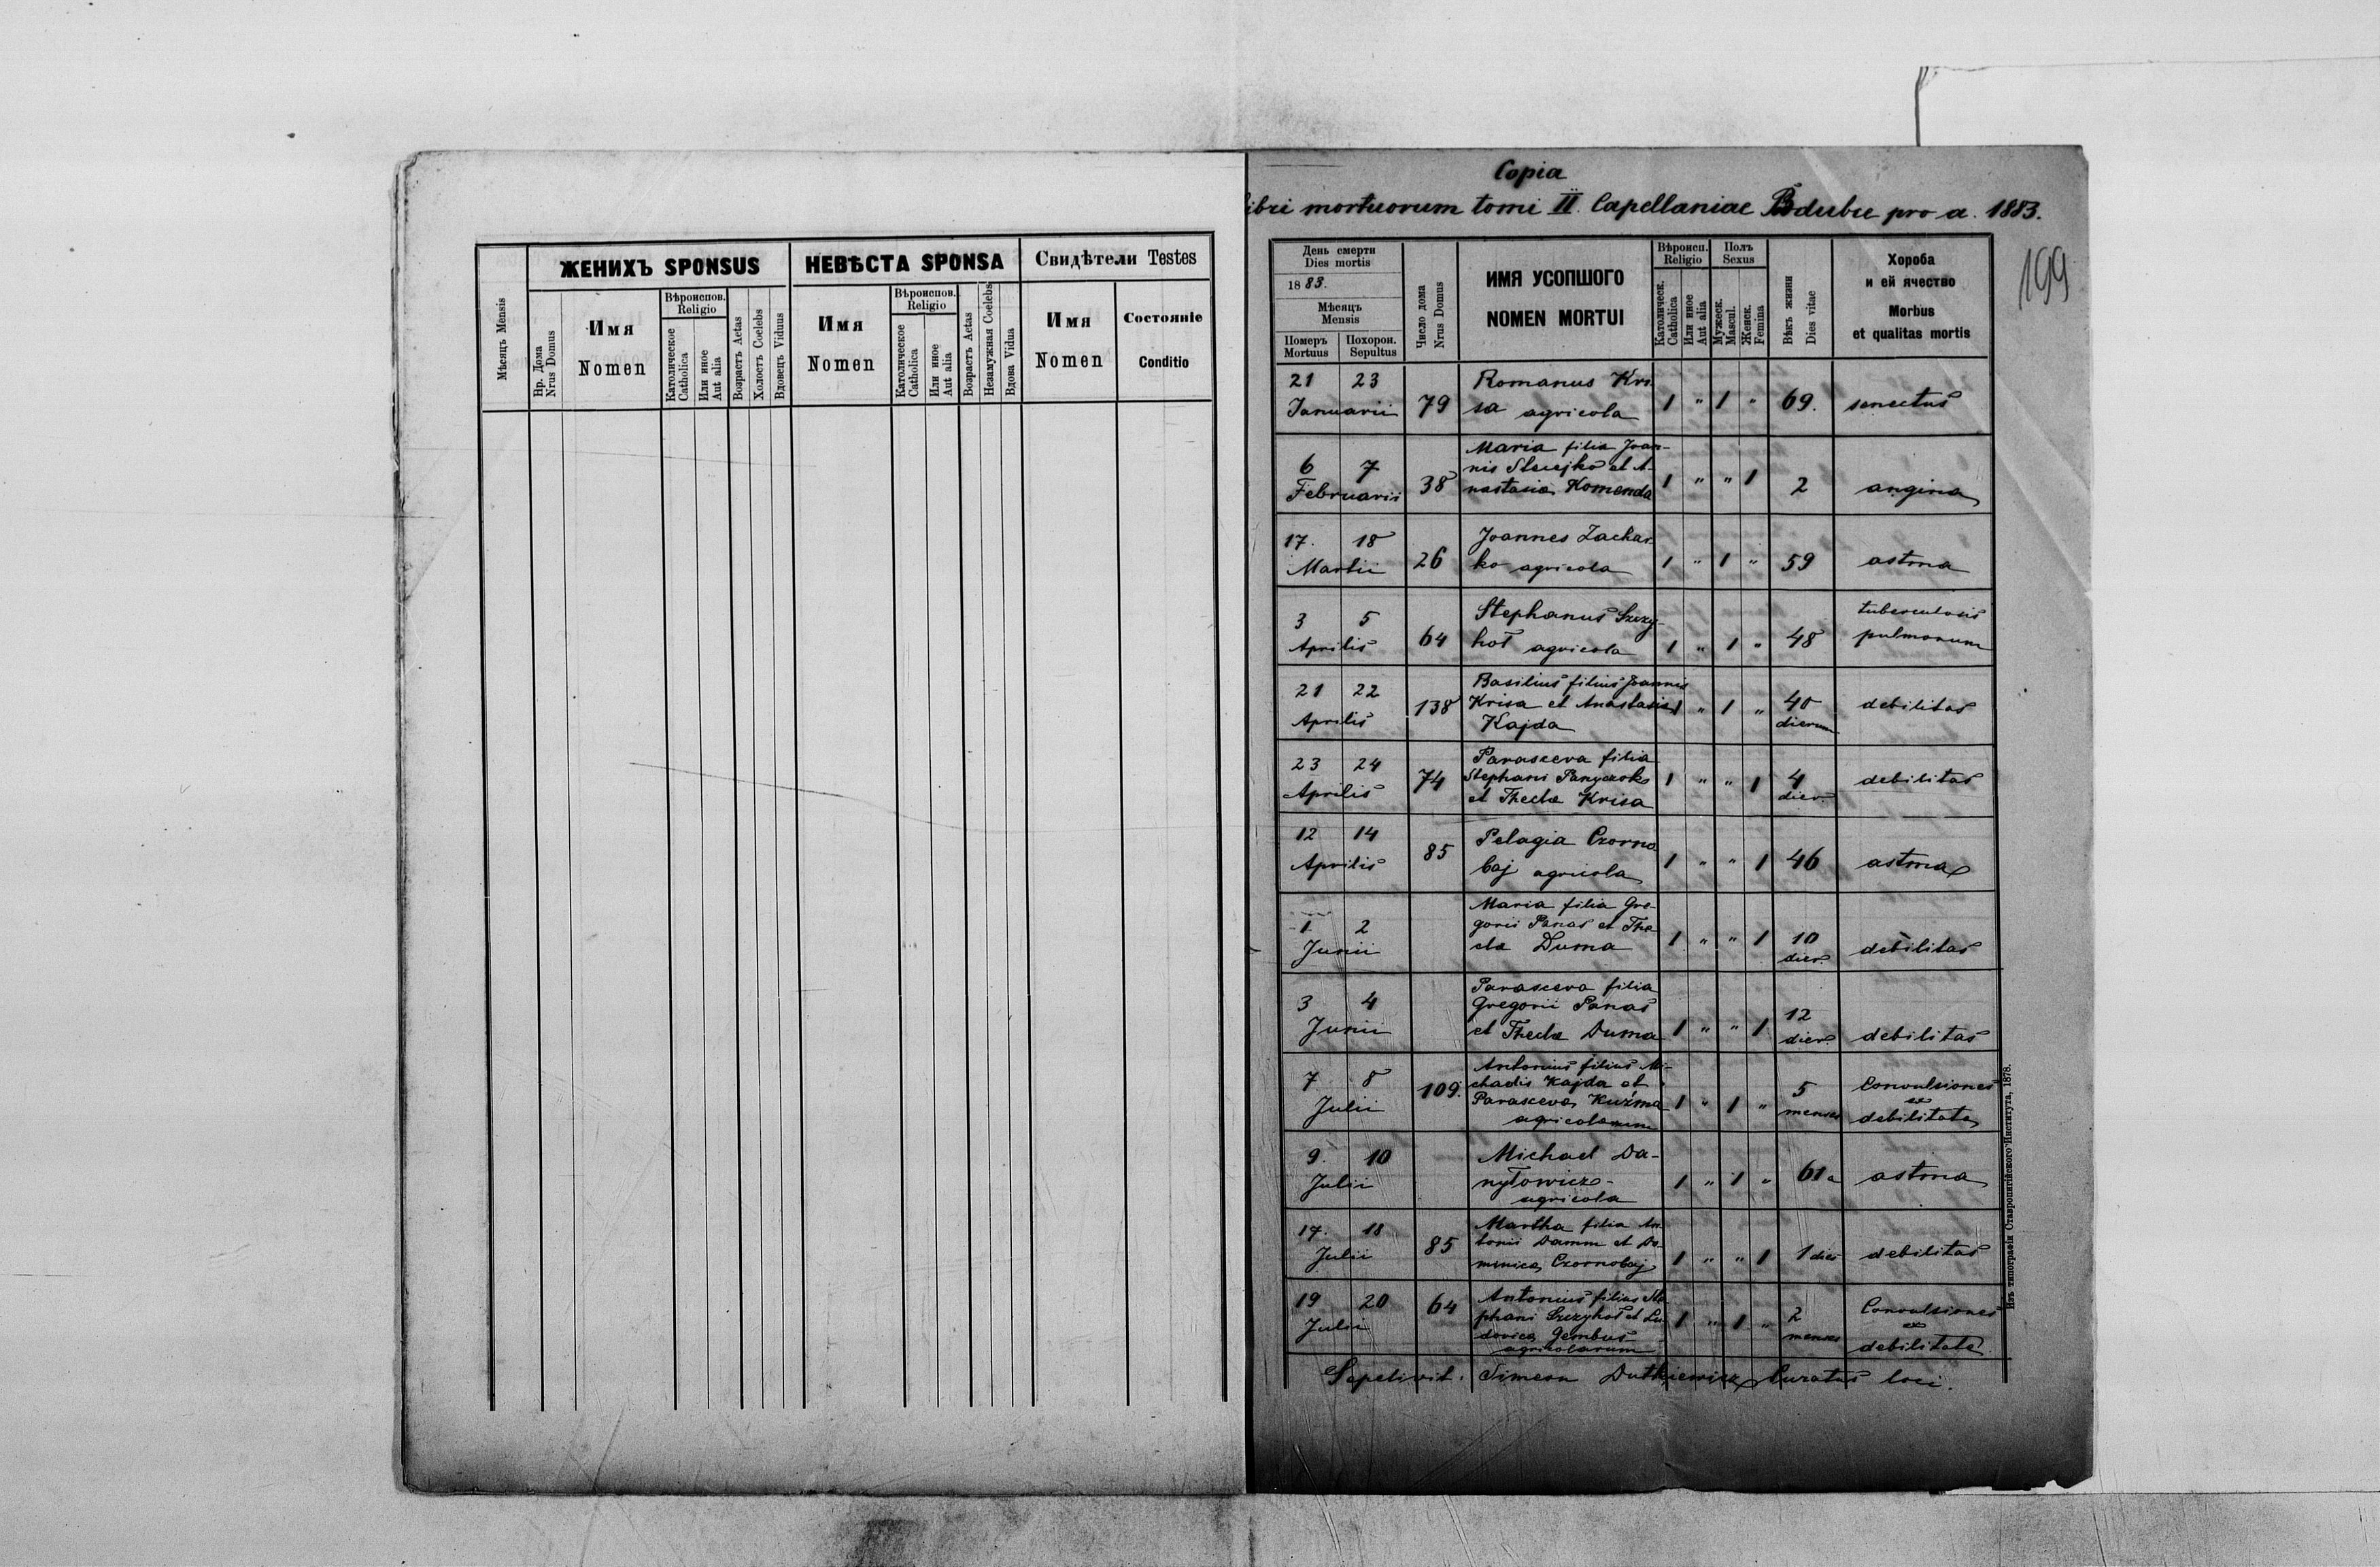 ЖЕНИХЪ SPONSUS
НЕВѢСТА SPONSA
Свидѣтели Testes
Мѣсяцъ Mensis
Нр. Дома
Nrus Domus
Имя
Nomen
Вѣроиспов.
Religio
Католическое
Catholica
Или иное
Aut alia
Возрастъ Aetas
Холостъ Coelebs
Вдовецъ Viduus
Имя
Nomen
Вѣроиспов.
Religio
Католическое
Catholica
Или иное
Aut alia
Возрастъ Aetas
Незамужная Coelebs
Вдова Vidua
Имя
Nomen
Состоянiе
Conditio
Copia
libri mortuorum tomi II. Capellaniae pro a. 1883.
199
День смерти
Dies mortis
1883.
Мѣсяцъ
Mensis
Померъ
Mortuus
Похорон.
Sepultus
Число дома
Nrus Domus
ИМЯ УСОПШОГО
NOMEN MORTUI
Вѣроисп.
Religio
Католическ.
Catholica
Или иное
Aut alia
Полъ
Sexus
Мужеск.
Mascul.
Женск.
Femina
Вѣкъ жизни
Dies vitae
Хороба
и ей ячество
Morbus
et qualitas mortis
21 23 Romanus Kri-
Januarii 79 sa agricola 1 " 1 " 69. senectus
Maria filia Joan-
6 7 nis et A-
Februarii 38 nastasia Komenda 1 " " 1 2 angina
17. 18 Joannes Zachar-
Martii 26 ko agricola 1 " 1 " 59 astma
3 5 Stephanus Szczy- tuberculosis
Aprilis 64 hoł agricola 1 " 1 " 48 pulmonum
21 22 Basilius filius Joannis
138 Krisa et Anastasia 1 " 1 " 40 debilitas
Aprilis Kajda dierum
23 24 Parasceva filia
74 Stephani et 1 " " 1 4 debilitas
Aprilis et Thecla Krisa dier.
12 14 85 Pelagia Czorno
Aprilis baj agricola 1 " " 1 46 astma
Maria filia Gre-
1 2 gorii Panas et The
Junii cla Duma 1 " " 1 10 dier. debilitas
Parasceva filia
3 4 Gregorii Panas
Junii et Thecla Duma 1 " " 1 12 dier. debilitas
Antonius filius Mi-
7 8 109. chaelis Kajda et 5 Convulsiones
Julii Parasceva Kuźma 1 " 1 " menses ex
agricolarum debilitate
9. 10 Michael Da-
Julii nyłowicz- 1 " 1 " 61 a astma
agricola
17. 18 Martha filia An-
85 tonii Damm et Do-
Julii minica Czornobaj 1 " " 1 1 dies debilitas
19 20 64 Antonius filius Ste- Convulsiones
Julii phani Szczyhoł et Lu- 1 " 1 " 2 ex
dovica Gembus menses
agricolarum debilitate.
Sepelivit. Simeon Dutkiewicz Curatus loci.
Изъ типографiи Ставропигiйского Института, 1878.